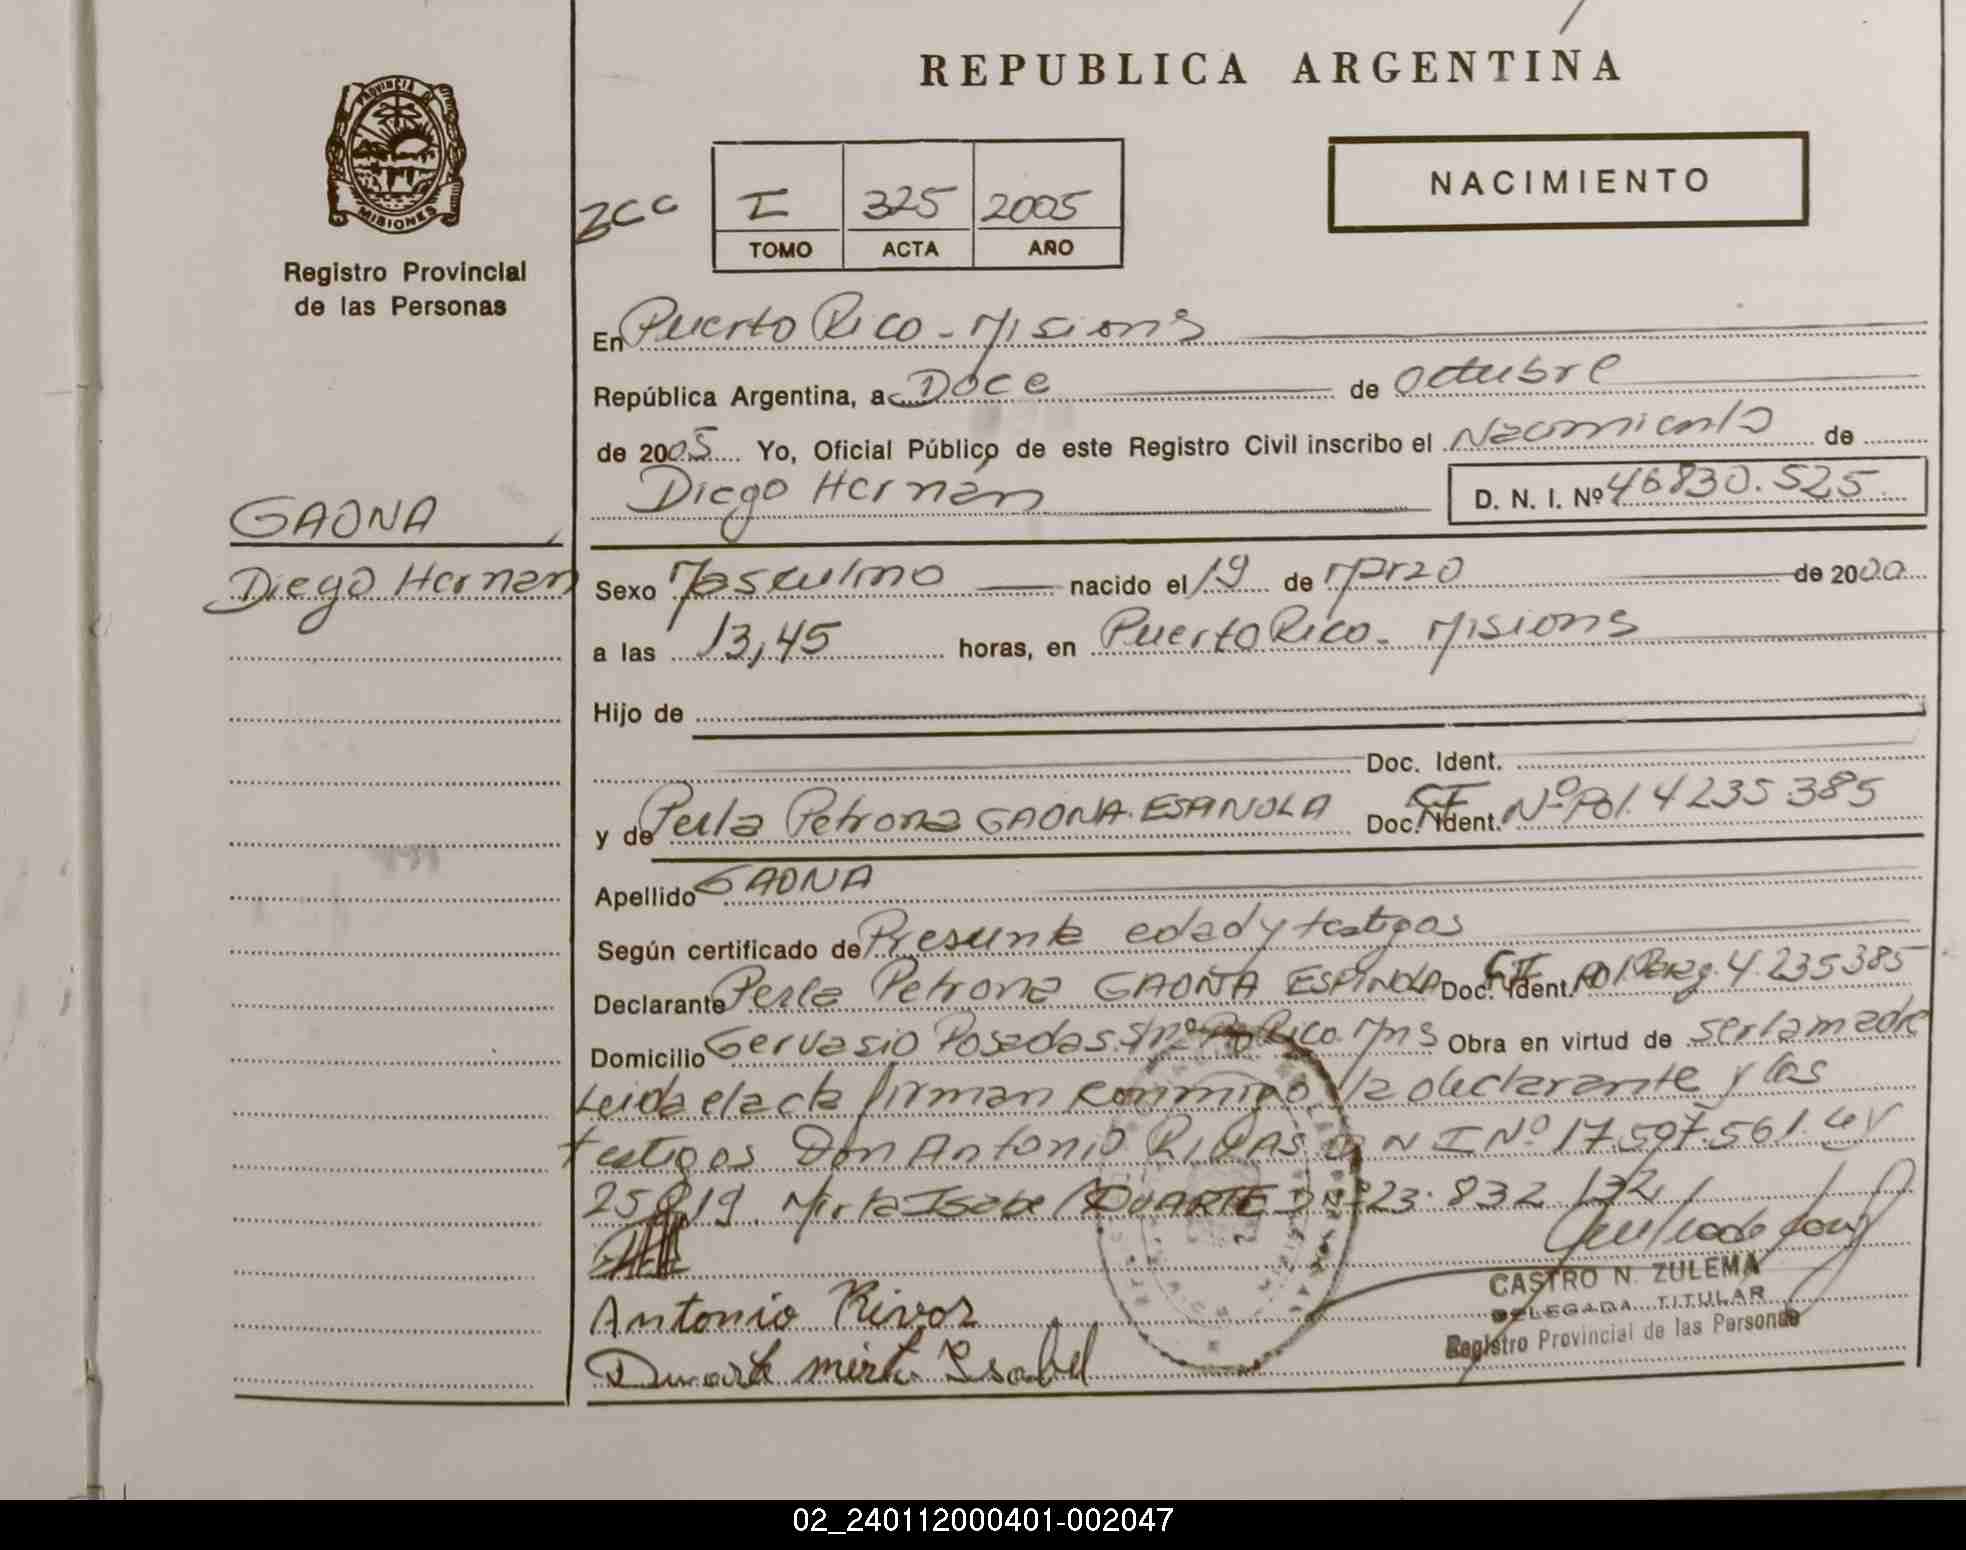 REPUBLICA ARGENTINA
PROVINCIA DE
MISIONES
Registro Provincial
de las Personas
I 325 2005
TOMO ACTA AÑO
NACIMIENTO
En Puerto Rico - Misiones
República Argentina, a Doce de octubre
de 2005 Yo, Oficial Público de este Registro Civil inscribo el Nacimiento de
Diego Hernán D. N. I. Nº 46830.525
GAONA
Diego Hernan
Sexo Masculino nacido el 19 de Marzo de 2000
a las 13,45 horas, en Puerto Rico - Misiones
Hijo de
Doc. Ident.
y de Perla Petrona GAONA ESPINOLA Doc. Ident. CI Nº Pol. 4235385
Apellido GAONA
Según certificado de Presunta edad y testigos
Declarante Perla Petrona GAONA ESPINOLA Doc. Ident. CI Pol. 4.235385
Domicilio Gervasio Posadas S/nº Pto Rico Mns Obra en virtud de ser la madre
Leida el acta firman conmigo la declarante y los
testigos Don Antonio RIVAS D N I Nº 17.597.561. Ley
25819. Mirta Isabel DUARTE D Nº 23.832.132
Antonio Rivas
Duarte mirta Isabel
CASTRO N. ZULEMA
DELEGADA TITULAR
Registro Provincial de las Personas
02_240112000401-002047